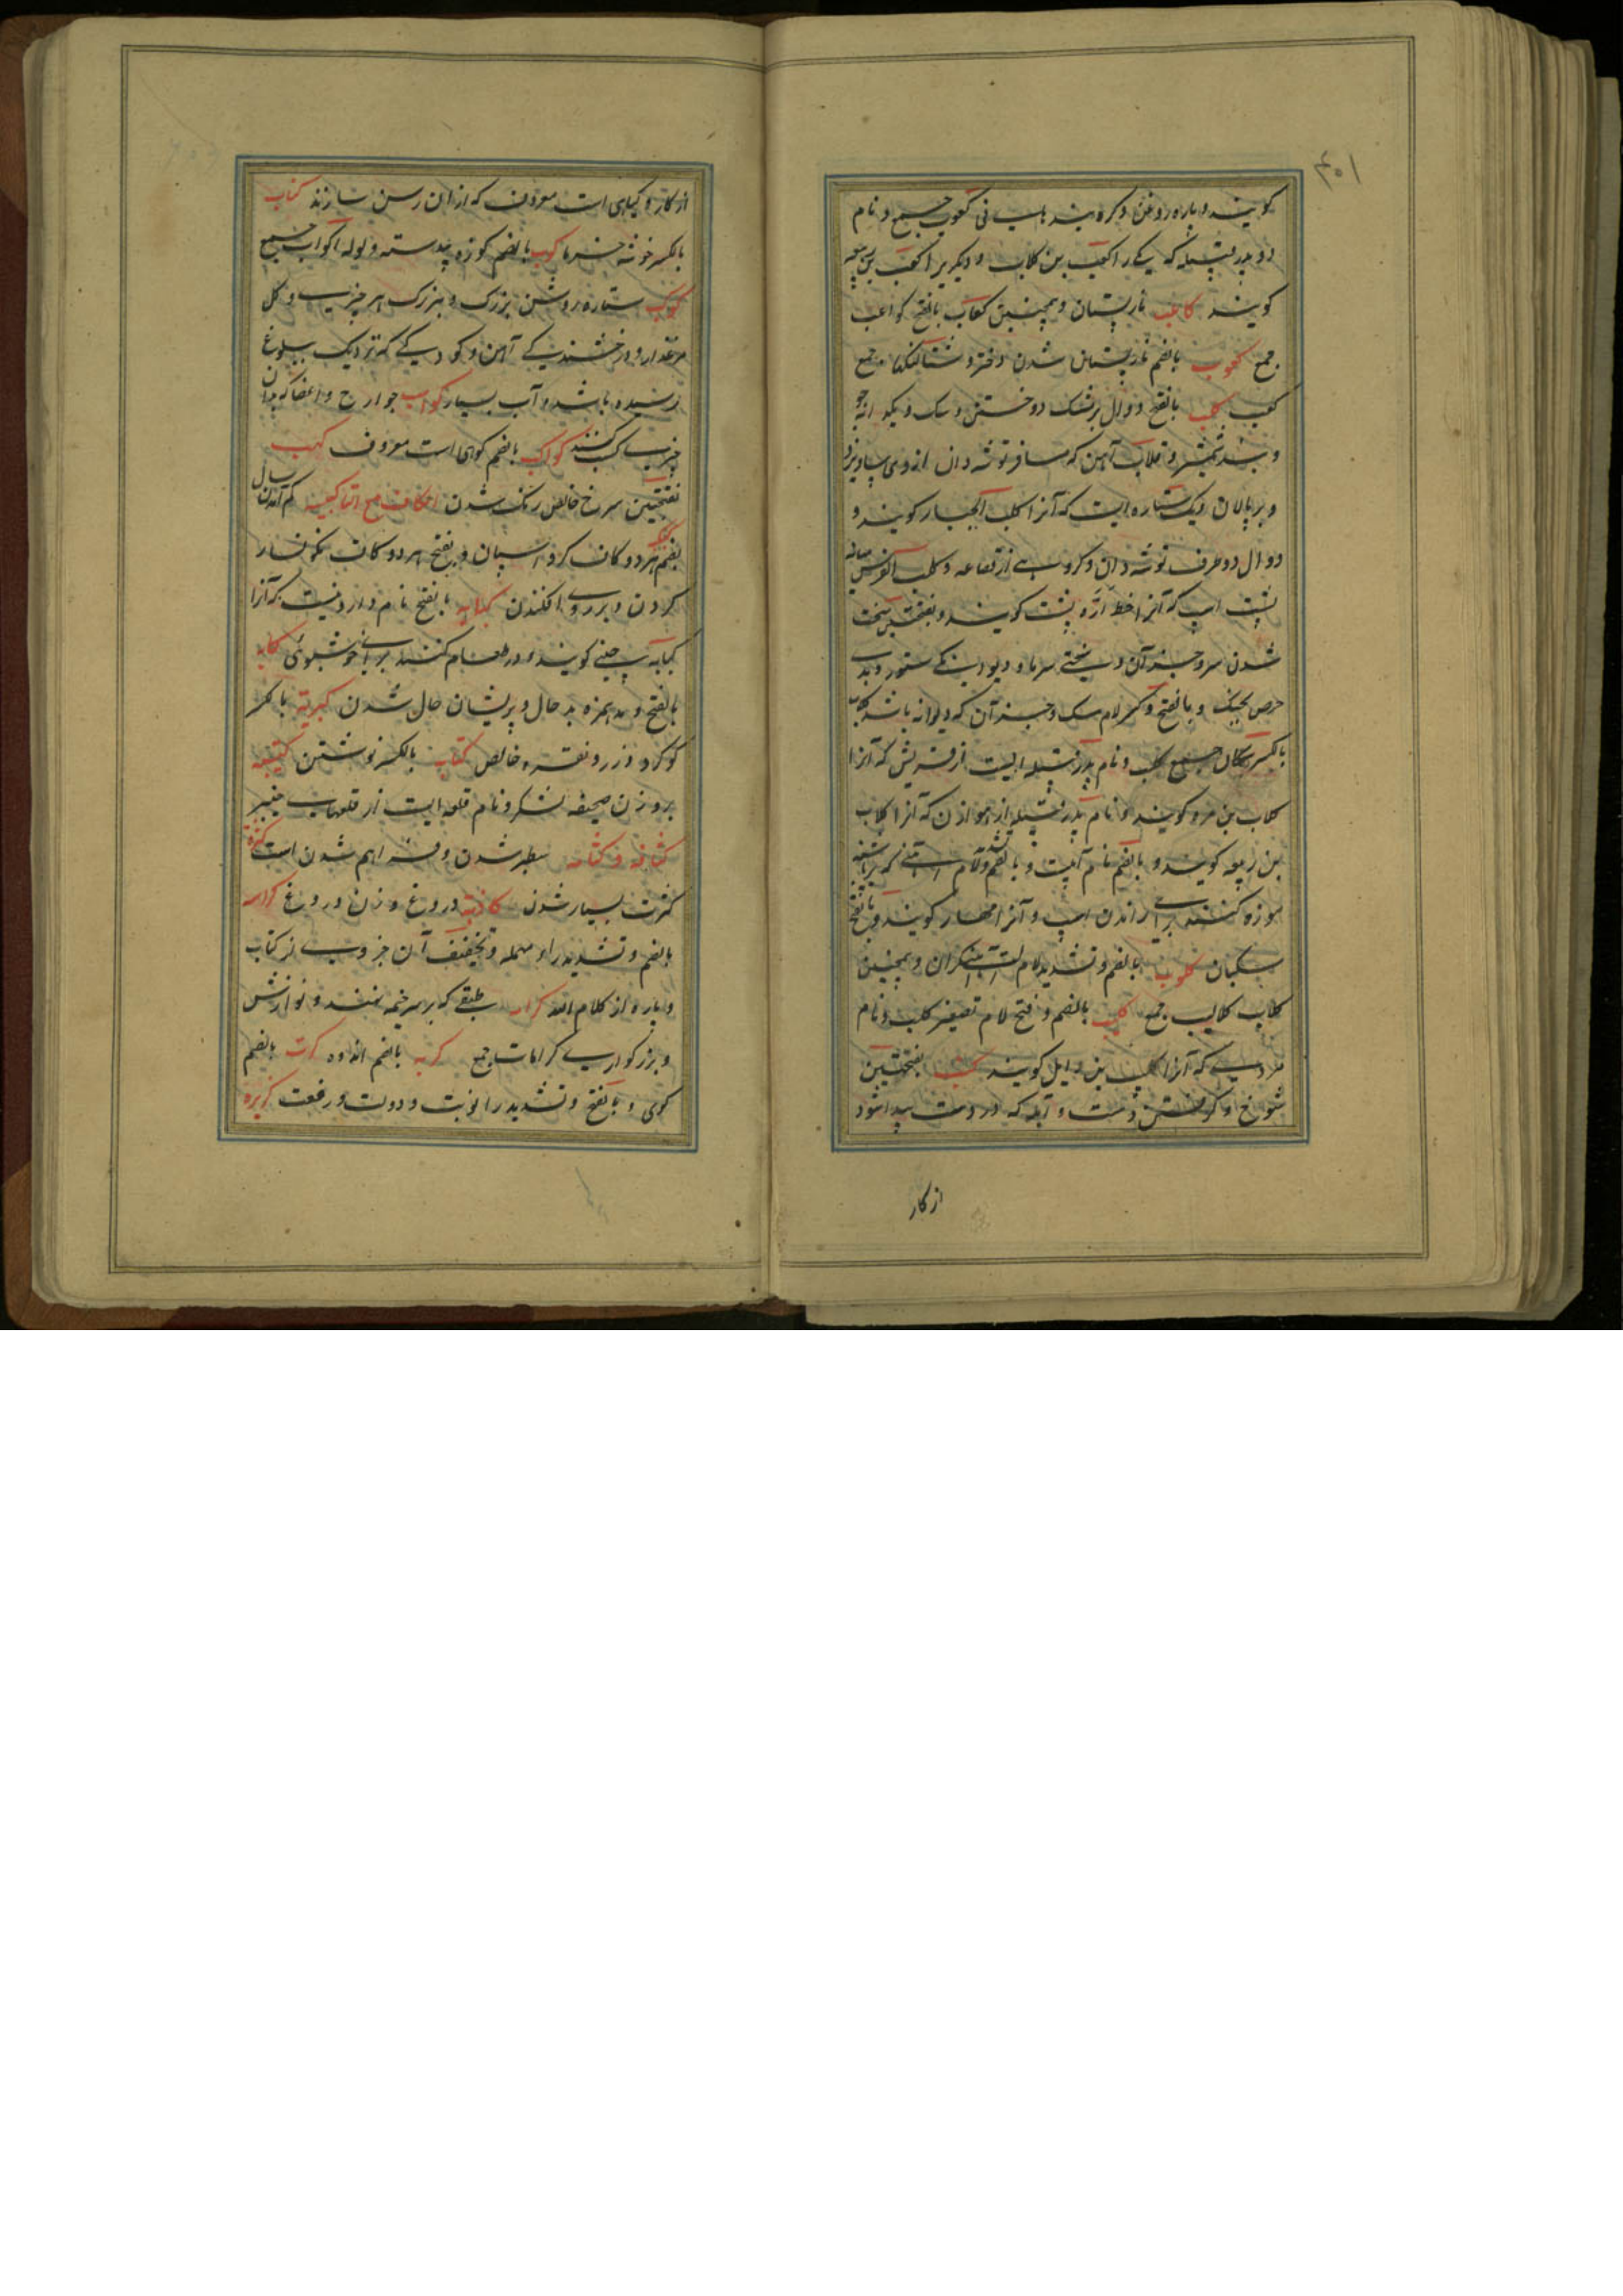 ۴۰۱
کویند و پاره روغن و کره بندهای نی کعوب جمع و نام
دو پدر قبیله که یکی را کعب بن کلاب و دیگر را کعب بن ربیعه
کویند کاعب نارپستان و همچنین کعاب بالفتح کواعب
جمع کعوب بالضم نارپستان شدن دختر و شتالنکها جمع
کعب کلب بالفتح دوال بر مشک دوختن و سک و یکی از
و بند شمشیر و قلاب آهن که مسافر توشه دان از وی بیاویزد
و بر پالان و یک ستاره ایست که آنرا کلب الجبار کویند و
دوال دو طرف توشه دان و کروهی از قضاعه و کلب الفرس میانه
پشت اسپ که آنرا خط اره پشت کویند و بفتحتین سخت
شدن سرما و جز آن و سختی سرما و دیوانکی ستور و بد
حرص بچیزی و بالفتح و کسر لام سک و جز آن که دیوانه باشد کلاب
بالکسر سکان جمع کلب و نام پدر قبیله ایست از قریش که آنرا
کلاب بن مره کویند و نام پدر قبیله از هوازن که آنرا کلاب
بن ربیعه کویند و بالضم نام آبیست و بالضم و تشدید لام آهنی که بر پاشنه
موزه کنند برای راندن اسپ و آنرا مهماز کویند و بالفتح
سکبان کلوب بالضم و تشدید لام آهنکران و همچنین
کلاب کلالیب جمع کلیب بالضم و فتح لام تصغیر کلب و نام
مردی که آنرا کلیب بن وایل کویند کنب بفتحتین
شوخ او کرفتن دست و آبله که در دست پیدا شود
از کار
از کار و کیاهی است معروف که از ان رسن سازند کناب
بالکسر خوشه خرما کوب بالضم کوزه بی دسته و لوله اکواب جمع
کوکب ستاره روشن بزرک و بزرک هر چیزی و کل
مرغزار و درخشندکی آهن و کودکی که نزدیک ببلوغ
رسیده باشد و آب بسیار کواسب جوارح و اعضا که بدان
چیزی کسب کنند کواکب بالضم کوهی است معروف کهب
بفتحتین سرخ خالص رنک شدن الکاف مع التا کبکبه کم آمدن سال
بضم هر دو کاف کروه اسپان و بفتح هر دو کاف نکونسار
کردن و بر روی افکندن کبابه بالفتح نام داروئیست که آنرا
کبابه چینی کویند و در طعام کنند برای خوشبوئی کآبه
بالفتح و مد همزه بد حال و پریشان حال شدن کبریت بالکسر
کوکرد و زر و نقره خالص کتابه بالکسر نوشتن کتیبه
بر وزن صحیفه لشکر و نام قلعه ایست از قلعهای خیبر
کثافه و کثاثه سطبر شدن و فراهم شدن است کثره
کثرت بسیار شدن کاذبه دروغ و زن دروغ کراسه
بالضم و تشدید راء مهمله و تخفیف آن جزوی از کتاب
و پاره از کلام الله کرامه طبقی که بر سر خم نهند و نوازش
و بزرکواری کرامات جمع کربه بالضم اندوه کرت بالضم
کوی و بالفتح و تشدید را نوبت و دولت و رفعت کریزه